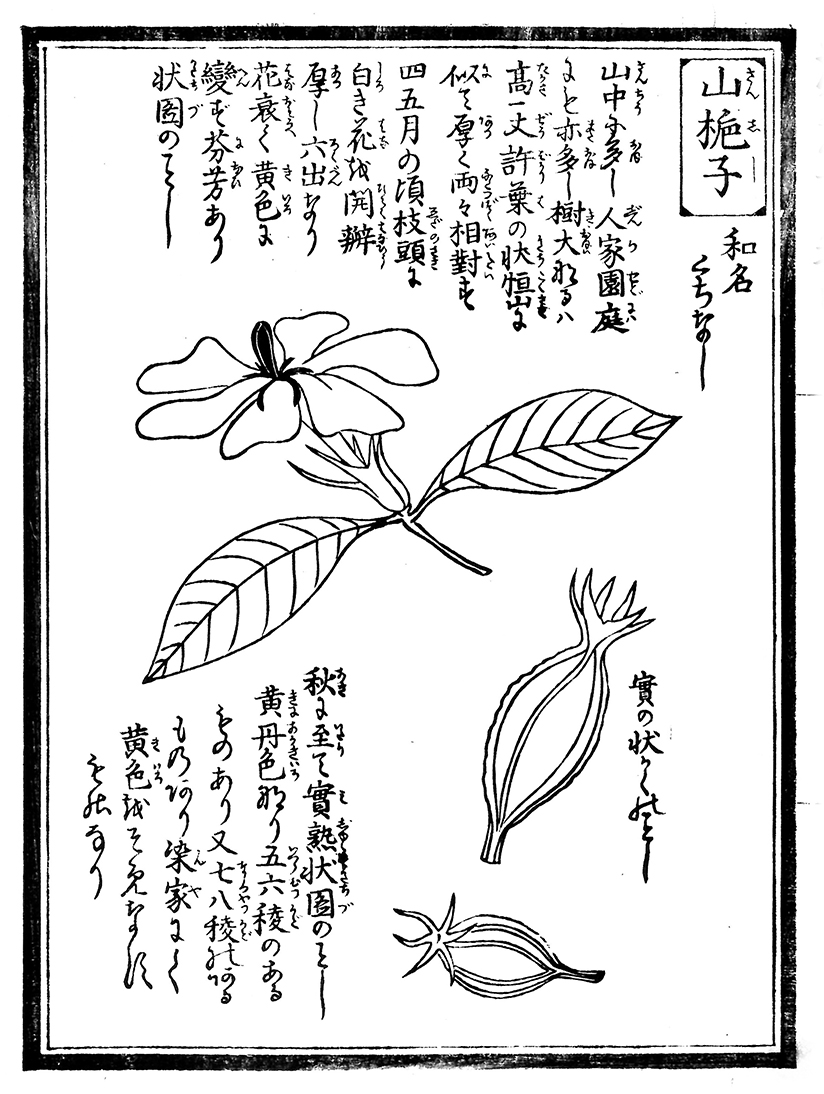 山梔子
和名
くちなし
山中に多し人家園庭
にも亦多し樹大なるハ
高一丈許葉の状恒山に
似て厚く両々相對す
四五月の頃枝頭に
白き花を開く瓣
厚し六出なり
花衰て黄色に
變ず芬芳あり
状圖のごとし
實の状かくのごとし
秋に至て實熟状圖のごとし
黄丹色なり五六稜のある
ものあり又七八稜のある
ものあり染家にて
黄色を
ものなり